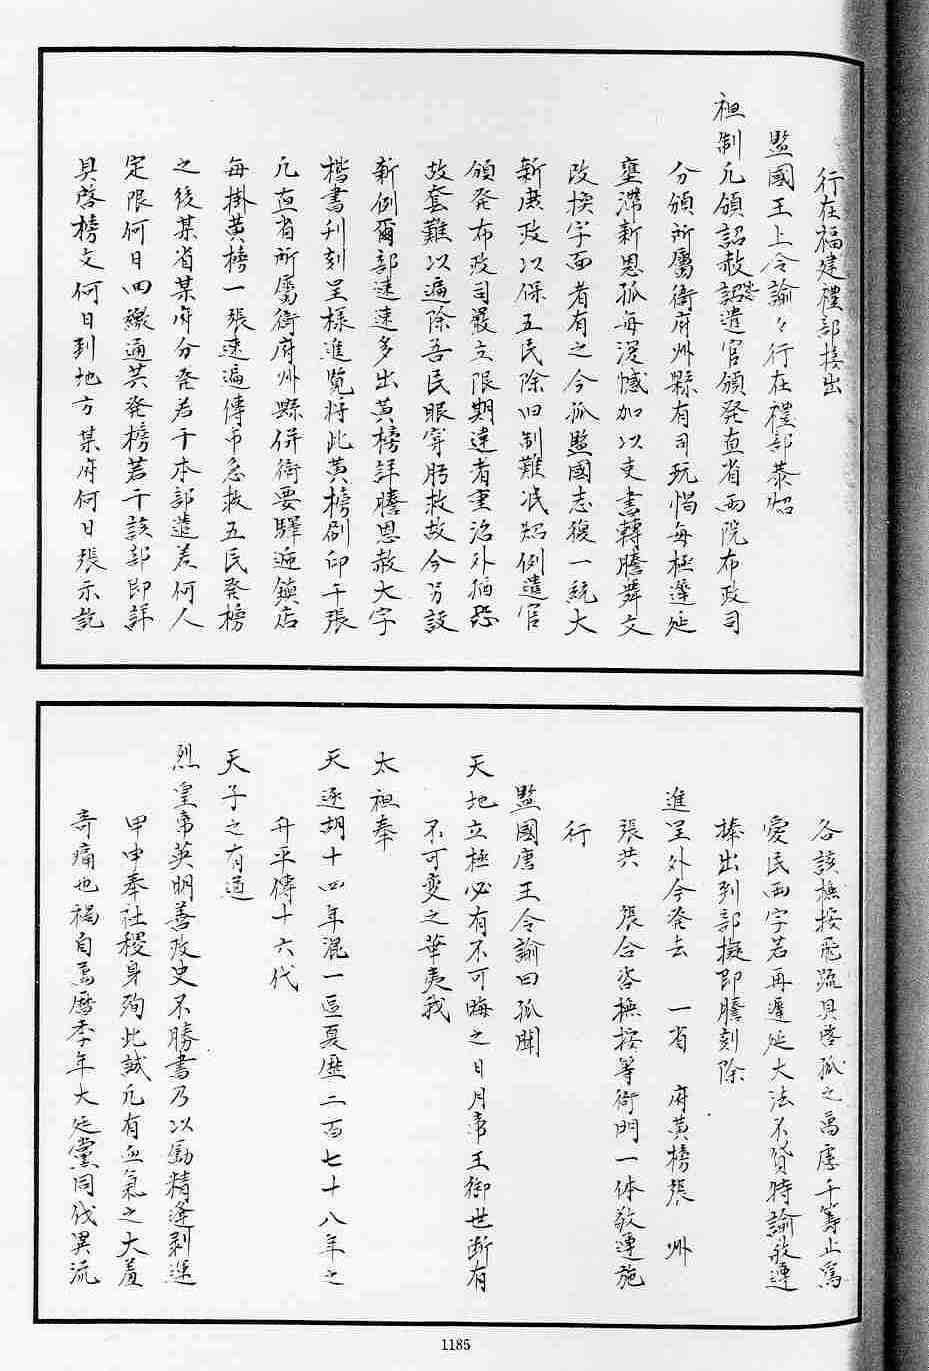 行在福建禮部接出
監國王上令諭々行在禮部恭炤
祖制凡頒詔赦詔遣官頒発直省兩院布政司
分頒所屬衙府州縣有司玩愒每極遲延
壅滯新恩孤每深憾加以吏書轉謄舞文
改換字面者有之今孤監國志復一統大
新庶政以保五民除旧制難泯炤例遣官
頒発布政司嚴立限期違者重治外猶恐
故套難以遍除吾民眼穿肟救故今另設
新例爾部速速多出黃榜詳謄恩赦大字
楷書刊刻呈様進覧将此黃榜刷印千張
凡直省所屬衙府州縣併衝要驛逓鎮店
每掛黃榜一張速遍傳布急救五民発榜
之後某省某府分発若干本部遣差何人
定限何日回繳通共発榜若干該部即詳
具啓榜文何日到地方某府何日張示訖
各該撫按飛疏具啓孤之萬慮千籌止爲
愛民両字若再遲延大法不貸特諭敬遵
捧出到部擬即謄刻除
進呈外今発去 一省 府黃榜張 州
張共 張合咨撫按等衙門一体敬遵施
行
監國唐王令諭曰孤聞
天地立極必有不可晦之日月帝王御世断有
不可変之華夷我
太祖奉
天逐胡十四年混一區夏歴二百七十八年之
升平傳十六代
天子之有道
烈皇帝英明善政史不勝書乃以勵精逢剥運
甲申奉社稷身殉此誠凡有血氣之大羞
奇痛也禍自萬曆季年大廷黨同伐異流
1185